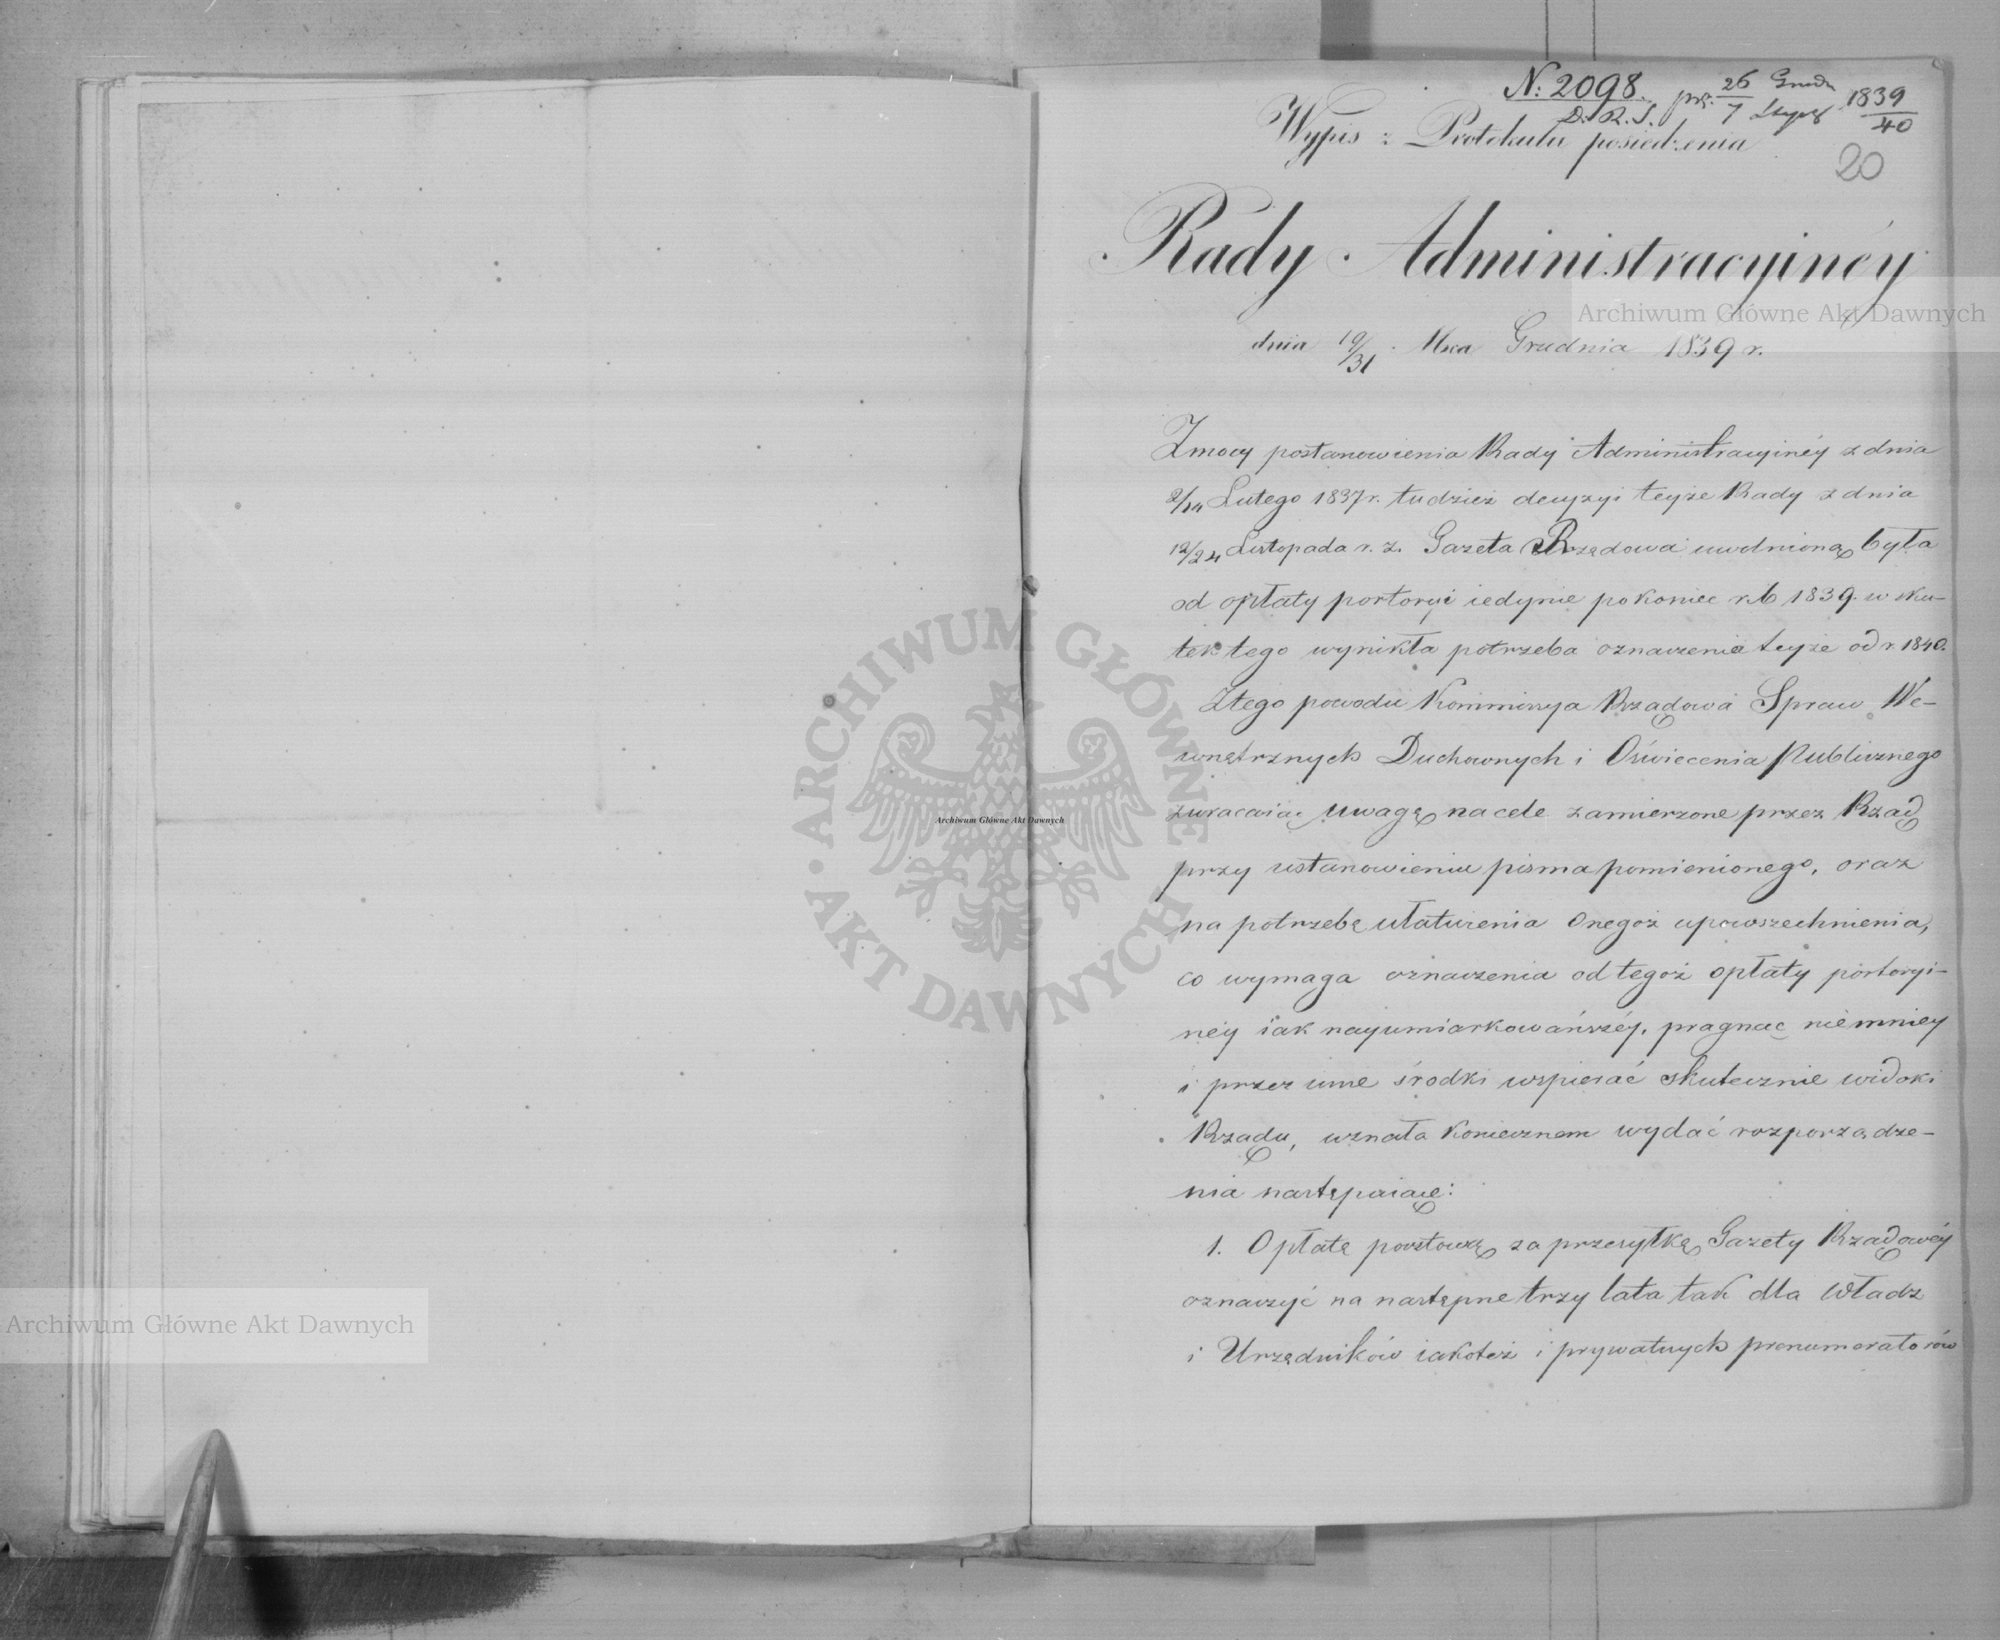 N: 2098. prz. 26/7 Grud. Stycz. 1839/40
D. R. S.
20
Wypis z Protokułu posiedzenia
Rady Administracyinéy
dnia 19/31 Mca Grudnia 1839 r.
Z mocy postanowienia Rady Administracyinéy z dnia
2/14 Lutego 1837 r. tudzież decyzyi teyże Rady z dnia
12/24 Listopada r. z. Gazeta Rządowa uwolnioną była
od opłaty portoryi iedynie po koniec r. b. 1839. w sku-
tek tego wynikła potrzeba oznaczenia teyże od r. 1840.
Z tego powodu Kommissya Rządowa Spraw We-
wnętrznych Duchownych i Oświecenia Publicznego
zwracaiąc uwagę na cele zamierzone przez Rząd
przy ustanowieniu pisma pomienionego, oraz
na potrzebę ułatwienia onegoż upowszechnienia,
co wymaga oznaczenia od tegoż opłaty portoryi-
néy iak nayumiarkowańszéy, pragnąc niemniey
i przez inne środki wspierać skutecznie widoki
Rządu, uznała koniecznem wydać rozporządze-
nia następuiące:
1. Opłatę pocztową za przesyłkę Gazety Rządowéy
oznaczyć na następne trzy lata tak dla Władz
i Urzędników iakoteż i prywatnych prenumeratorów
Archiwum Główne Akt Dawnych
Archiwum Główne Akt Dawnych
Archiwum Główne Akt Dawnych
ARCHIWUM GŁÓWNE AKT DAWNYCH